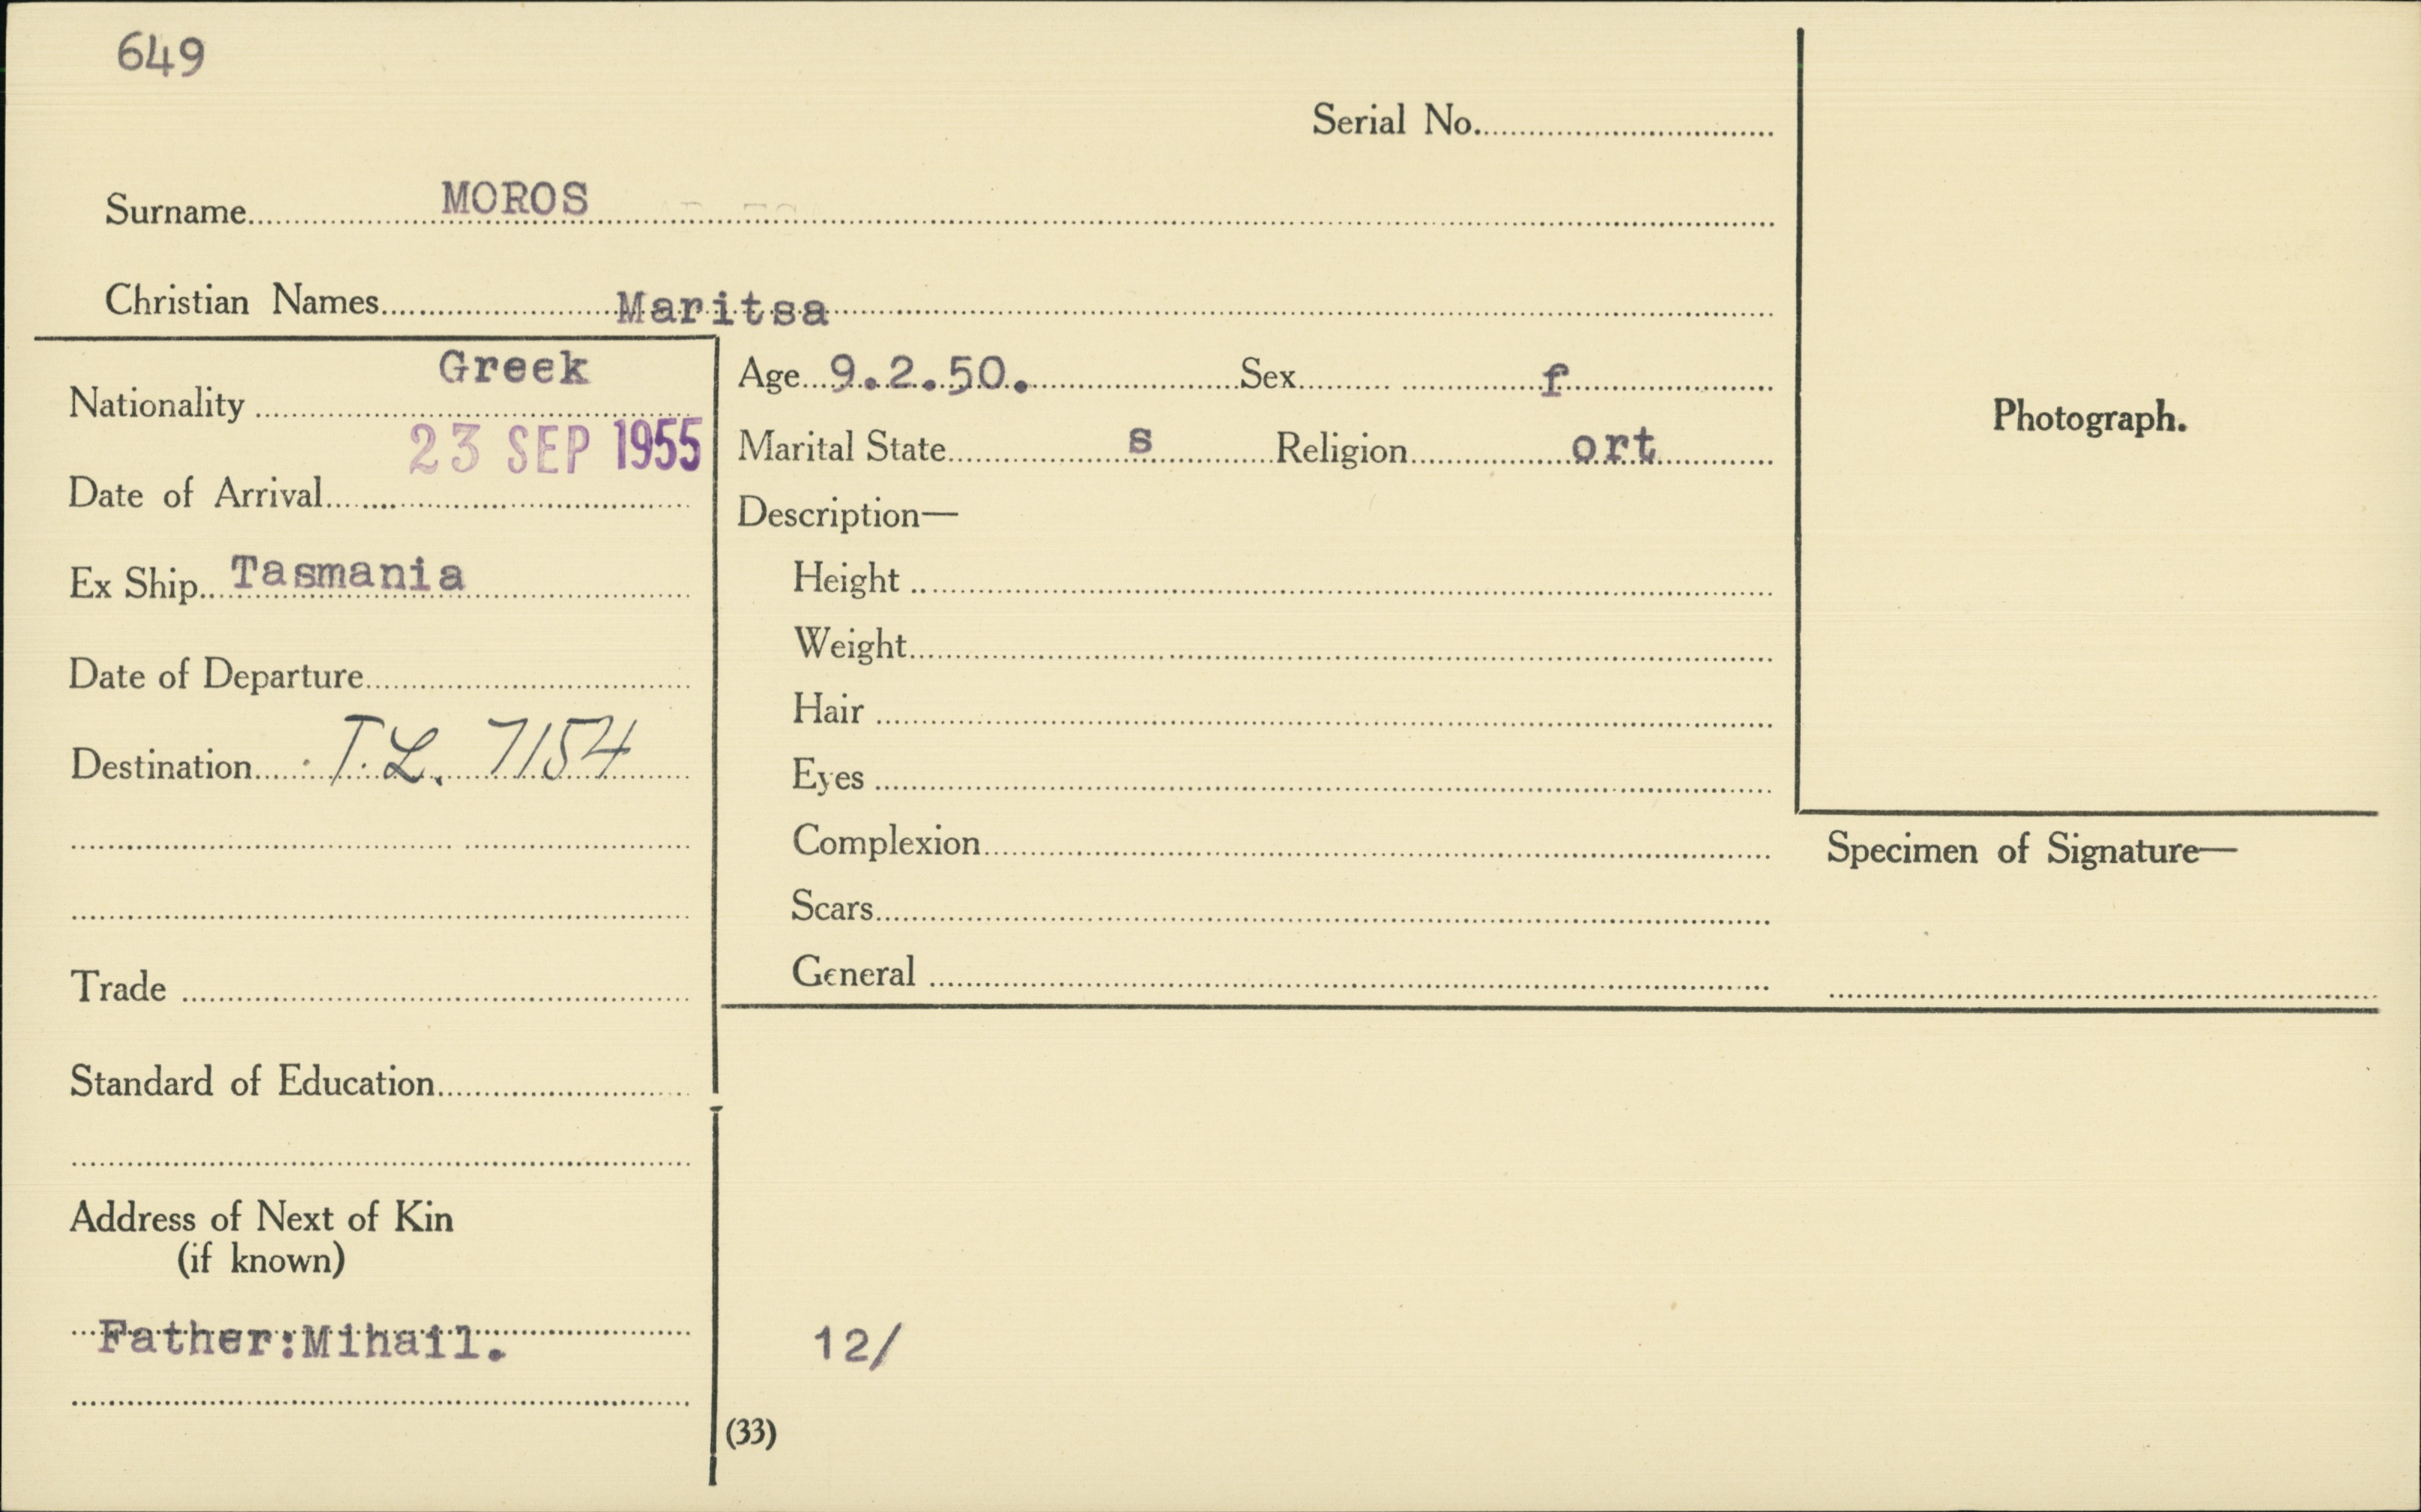 649
Serial No.
Surname MOROS
Christian Names Maritsa
Nationality Greek
Date of Arrival 23 SEP 1955
Ex Ship Tasmania
Date of Departure
Destination T.L. 7154
Trade
Standard of Education
Address of Next of Kin
(if known)
Father:Mihail.
Age 9.2.50. Sex f
Marital State s Religion ort
Description—
Height
Weight
Hair
Eyes
Complexion
Scars
General
12/
(33)
Photograph.
Specimen of Signature—